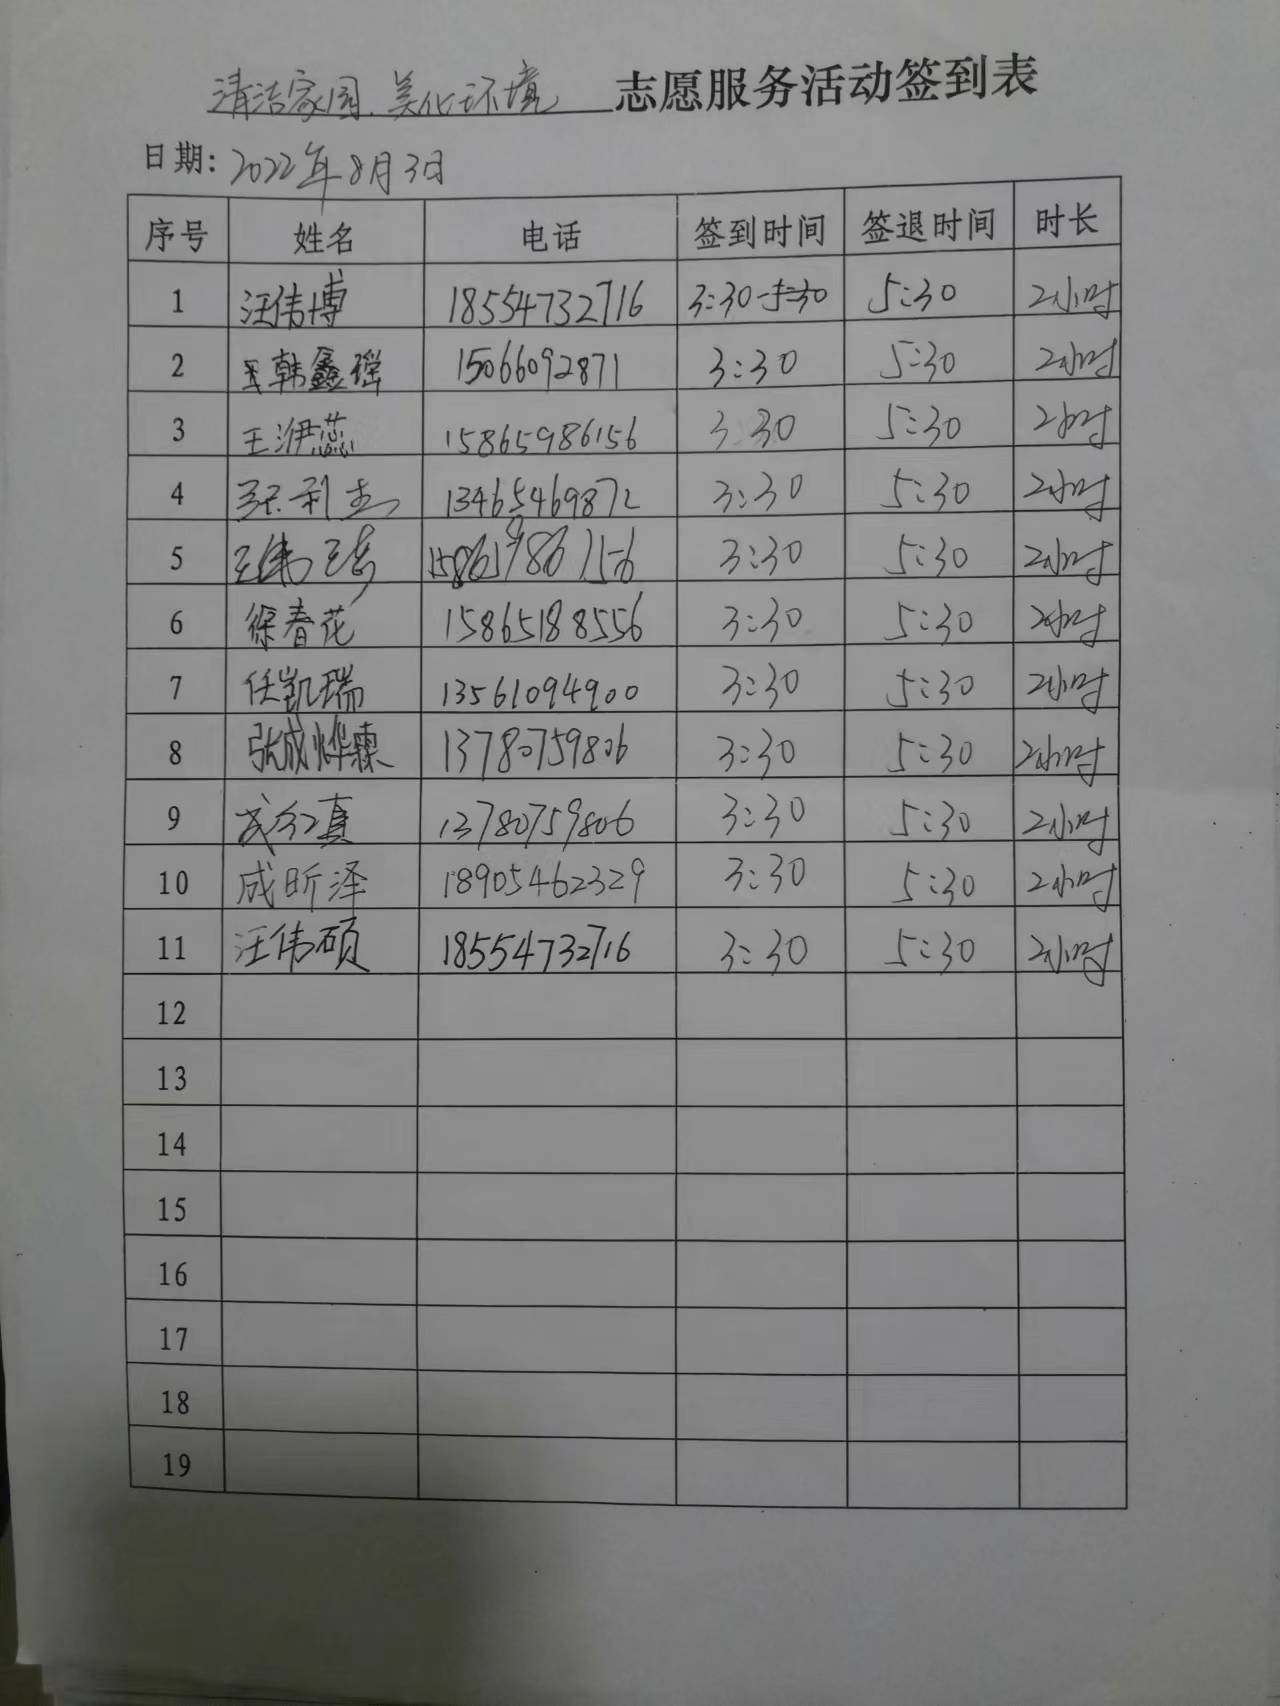 清洁家园、美化环境 志愿服务活动签到表
日期: 2022年8月3日
序号 姓名 电话 签到时间 签退时间 时长
1 汪伟博 18554732716 3:30-5:30 5:30 2小时
2 韩鑫瑶 15066092871 3:30 5:30 2小时
3 王洢蕊 15865986156 3:30 5:30 2小时
4 13465469872 3:30 5:30 2小时
5 3:30 5:30 2小时
6 徐春花 15865188556 3:30 5:30 2小时
7 任凯瑞 13561094900 3:30 5:30 2小时
8 张成烨霖 13780759806 3:30 5:30 2小时
9 13780759806 3:30 5:30 2小时
10 成昕泽 18905462329 3:30 5:30 2小时
11 汪伟硕 18554732716 3:30 5:30 2小时
12
13
14
15
16
17
18
19